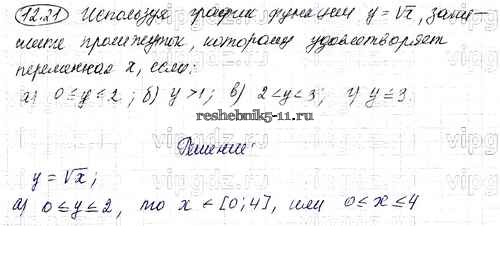 12.21 Используя график функции y = √x, запи-
шите промежуток, которому удовлетворяет
переменная x, если:
а) 0 ≤ y ≤ 2; б) y > 1; в) 2 < y < 3; г) y ≤ 3.
reshebnik5-11.ru
Решение
y = √x;
а) 0 ≤ y ≤ 2, то x ∈ [0; 4], или 0 ≤ x ≤ 4